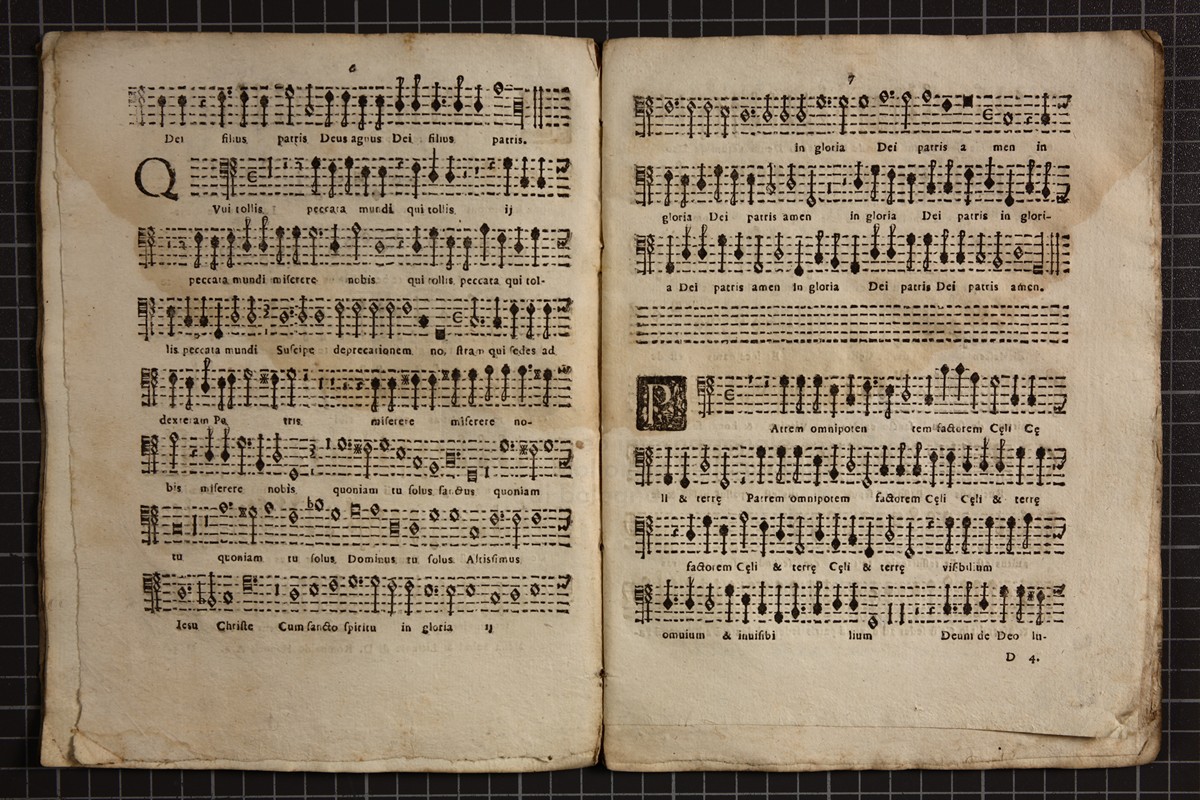 6
Dei filius patris Deus agnus Dei filius patris.
QVui tollis peccata mundi qui tollis ij
peccata mundi miserere nobis qui tollis peccata qui tol-
lis peccata mundi Suscipe deprecationem no, stram qui sedes ad
dexteram Pa tris miserere miserere no-
bis miserere nobis quoniam tu solus sanctus quoniam
tu quoniam tu solus Dominus tu solus Altissimus
Iesu Christe Cum sancto spiritu in gloria ij
7
in gloria Dei patris a men in
gloria Dei patris amen in gloria Dei patris in glori-
a Dei patris amen in gloria Dei patris Dei patris amen.
PAtrem omnipoten tem factorem Cęli Cę
li & terrę Patrem omnipotem factorem Cęli Cęli & terrę
factorem Cęli & terrę Cęli & terrę visibilium
omuium & inuisibi lium Deum de Deo lu-
D 4.